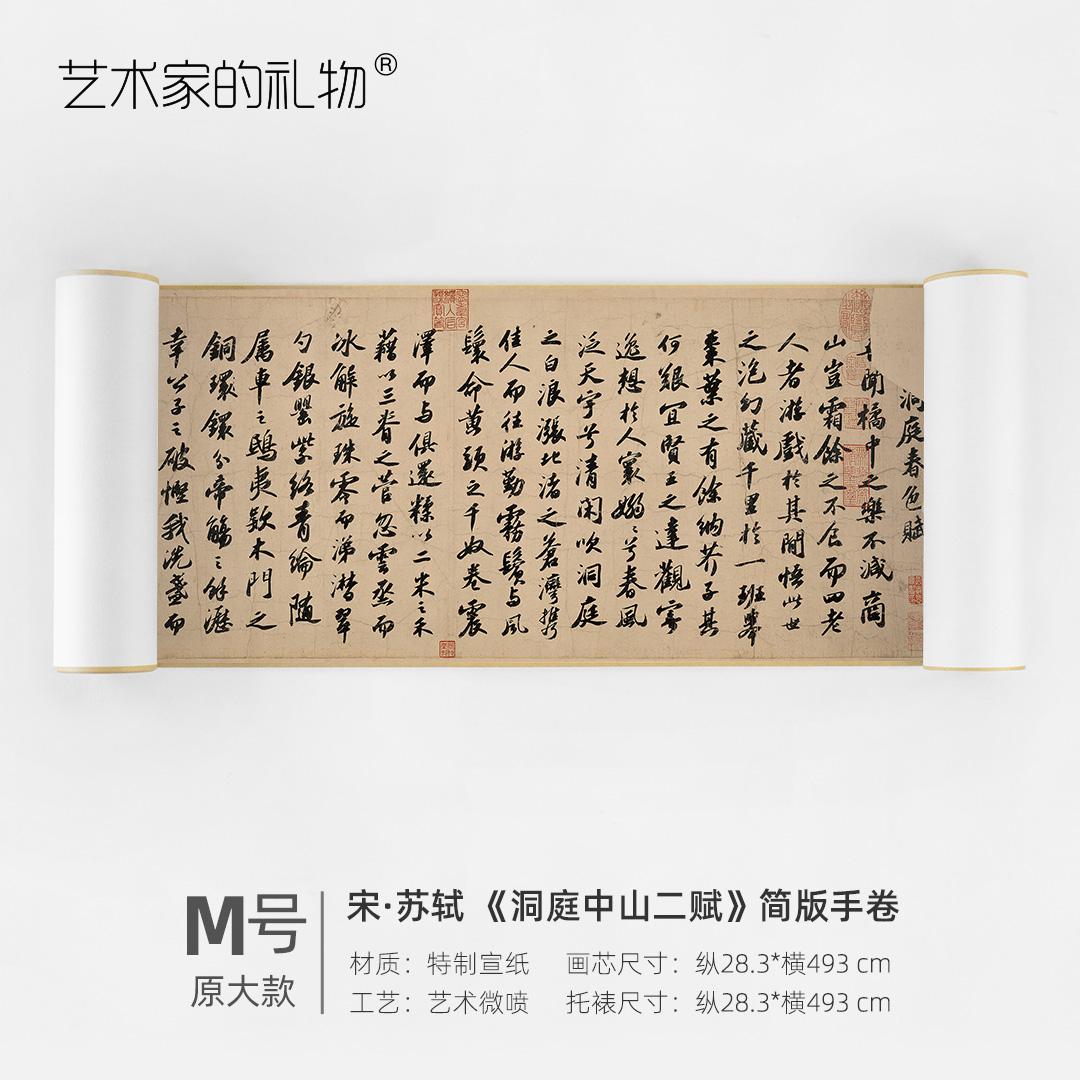 艺术家的礼物®
洞庭春色賦
聞橘中之樂不減商
山豈霜餘之不食而四老
人者游戲於其間悟此世
之泡幻藏千里於一班舉
棗葉之有餘納芥子其
何艱宜賢王之達觀寄
逸想於人寰嫋〻兮春風
泛天宇兮清閑吹洞庭
之白浪漲北渚之蒼灣攜
佳人而往游勤霧鬢与風
鬟命黄頭之千奴卷震
澤而与俱還糅以二米之禾
藉以三脊之菅忽雲烝而
冰解旋珠零而涕潸翠
勺銀罌紫絡青綸随
属車之鴟夷款木門之
銅環鐶分帝觴之餘瀝
幸公子之破慳我洗盞而
M号
原大款
宋·苏轼《洞庭中山二赋》简版手卷
材质：特制宣纸 画芯尺寸：纵28.3*横493 cm
工艺：艺术微喷 托裱尺寸：纵28.3*横493 cm